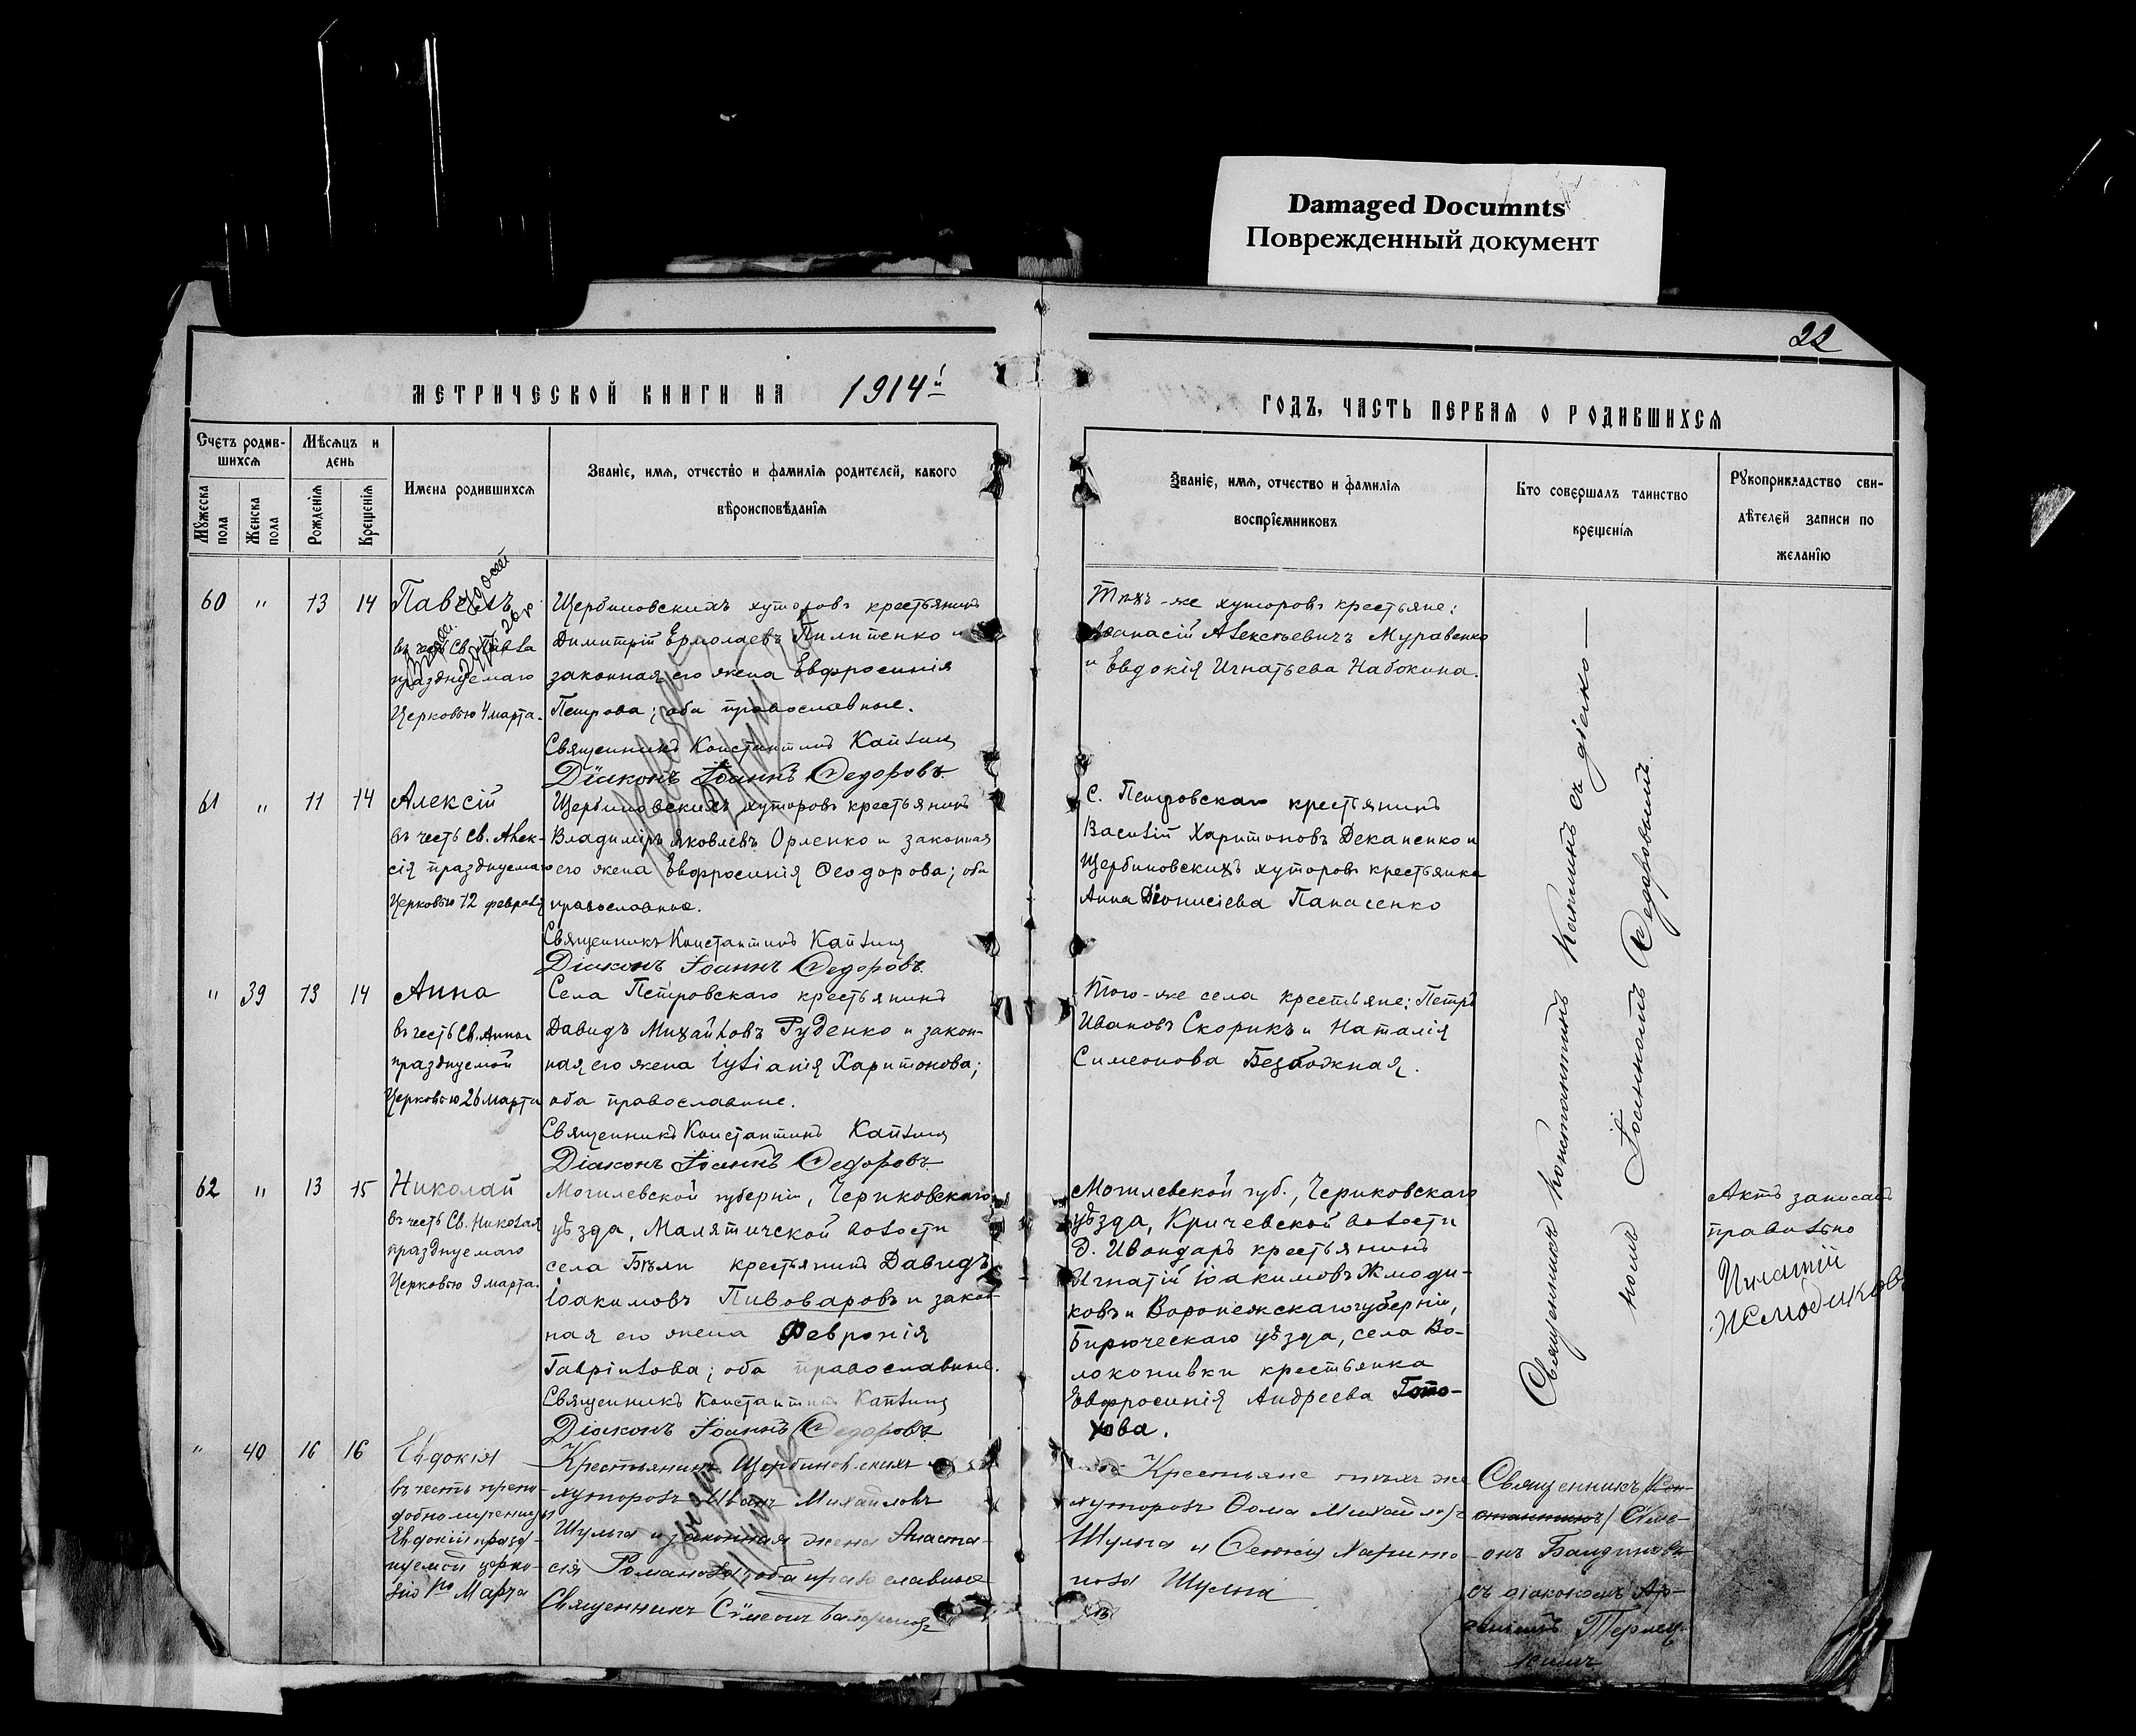 Damaged Documnts
Поврежденный документ
22
МЕТРИЧЕСКОЙ КНИГИ НА 1914й
ГОДЪ, ЧАСТЬ ПЕРВАЯ О РОДИВШИХСЯ
Счетъ родив-
шихся
Мужеска пола
Женска пола
Мѣсяцъ и
день
Рожденія
Крещенія
Имена родившихся
Званіе, имя, отчество и фамилія родителей, какого
вѣроисповѣданія
Званіе, имя, отчество и фамилія
воспріемниковъ
Кто совершалъ таинство
крещенія
Рукоприкладство сви-
дѣтелей записи по
желанію
60 " 13 14
Павелъ
въ честь Св. Павла
празднуемаго
Церковью 4 марта.
Щербиновскихъ хуторовъ крестьянинъ
Димитрій Ермолаевъ Пилипенко и
законная его жена Евфросинія
Петрова; оба православные.
Священникъ Константинъ
Діаконъ Іоаннъ Ѳедоровъ
Тѣхъ-же хуторовъ крестьяне:
Аѳанасій Алексѣевичъ Муравенко
и Евдокія Игнатьева Набокина.
61 " 11 14
Алексій
въ честь Св. Алек-
сія празднуемаго
Церковью 12 февраля
Щербиновскихъ хуторовъ крестьянинъ
Владиміръ Яковлевъ Орленко и законная
его жена Евфросинія Ѳеодорова; оба
православные.
Священникъ Константинъ
Діаконъ Іоаннъ Ѳедоровъ.
С. Петровскаго крестьянинъ
Василій Харитоновъ Деканенко и
Щербиновскихъ хуторовъ крестьянка
Анна Діонисіева Панасенко
" 39 13 14
Анна
въ честь Св. Анны
празднуемой
Церковью 26 марта
Села Петровскаго крестьянинъ
Давидъ Михайловъ Руденко и закон-
ная его жена Іуліанія Харитонова;
оба православные.
Священникъ Константинъ
Діаконъ Іоаннъ Ѳедоровъ
Того-же села крестьяне: Петръ
Ивановъ Скорикъ и Наталія
Симеонова Безбожная.
62 " 13 15
Николай
въ честь Св. Николая
празднуемаго
Церковью 9 марта.
Могилевской губерніи, Чериковскаго
уѣзда, Малятичской волости
села Бѣли крестьянинъ Давидъ
Іоакимовъ Пивоваровъ и закон-
ная его жена Февронія
Гавріилова; оба православные.
Священникъ Константинъ
Діаконъ Іоаннъ Ѳедоровъ
Могилевской губ., Чериковскаго
уѣзда, Кричевской волости
д. Ивондаръ крестьянинъ
Игнатій Іоакимовъ Жмоди-
ковъ и Воронежскаго губерніи,
Бирюческаго уѣзда, села Во-
локонивки крестьянка
Евфросинія Андреева Гото-
хова.
Священникъ Константинъ съ діако-
номъ Іоанномъ Ѳедоровымъ.
Актъ записанъ
правильно
Игнатій
Жмодиковъ
" 40 16 16
Евдокія
въ честь препо-
добномученицы
Евдокіи празд-
нуемой церко-
вію 1го Марта
Крестьянинъ Щербиновскихъ
хуторовъ Иванъ Михайловъ
Шульга и законная жена Анаста-
сія Романова; оба православные
Священникъ Сѵмеонъ
Крестьяне тѣхъ же
хуторовъ Ѳома Михайловъ
Шульга и Ксенія Харито-
нова Шульга
Священникъ Кон-
стантинъ Сѵме-
онъ
съ діакономъ Ар-